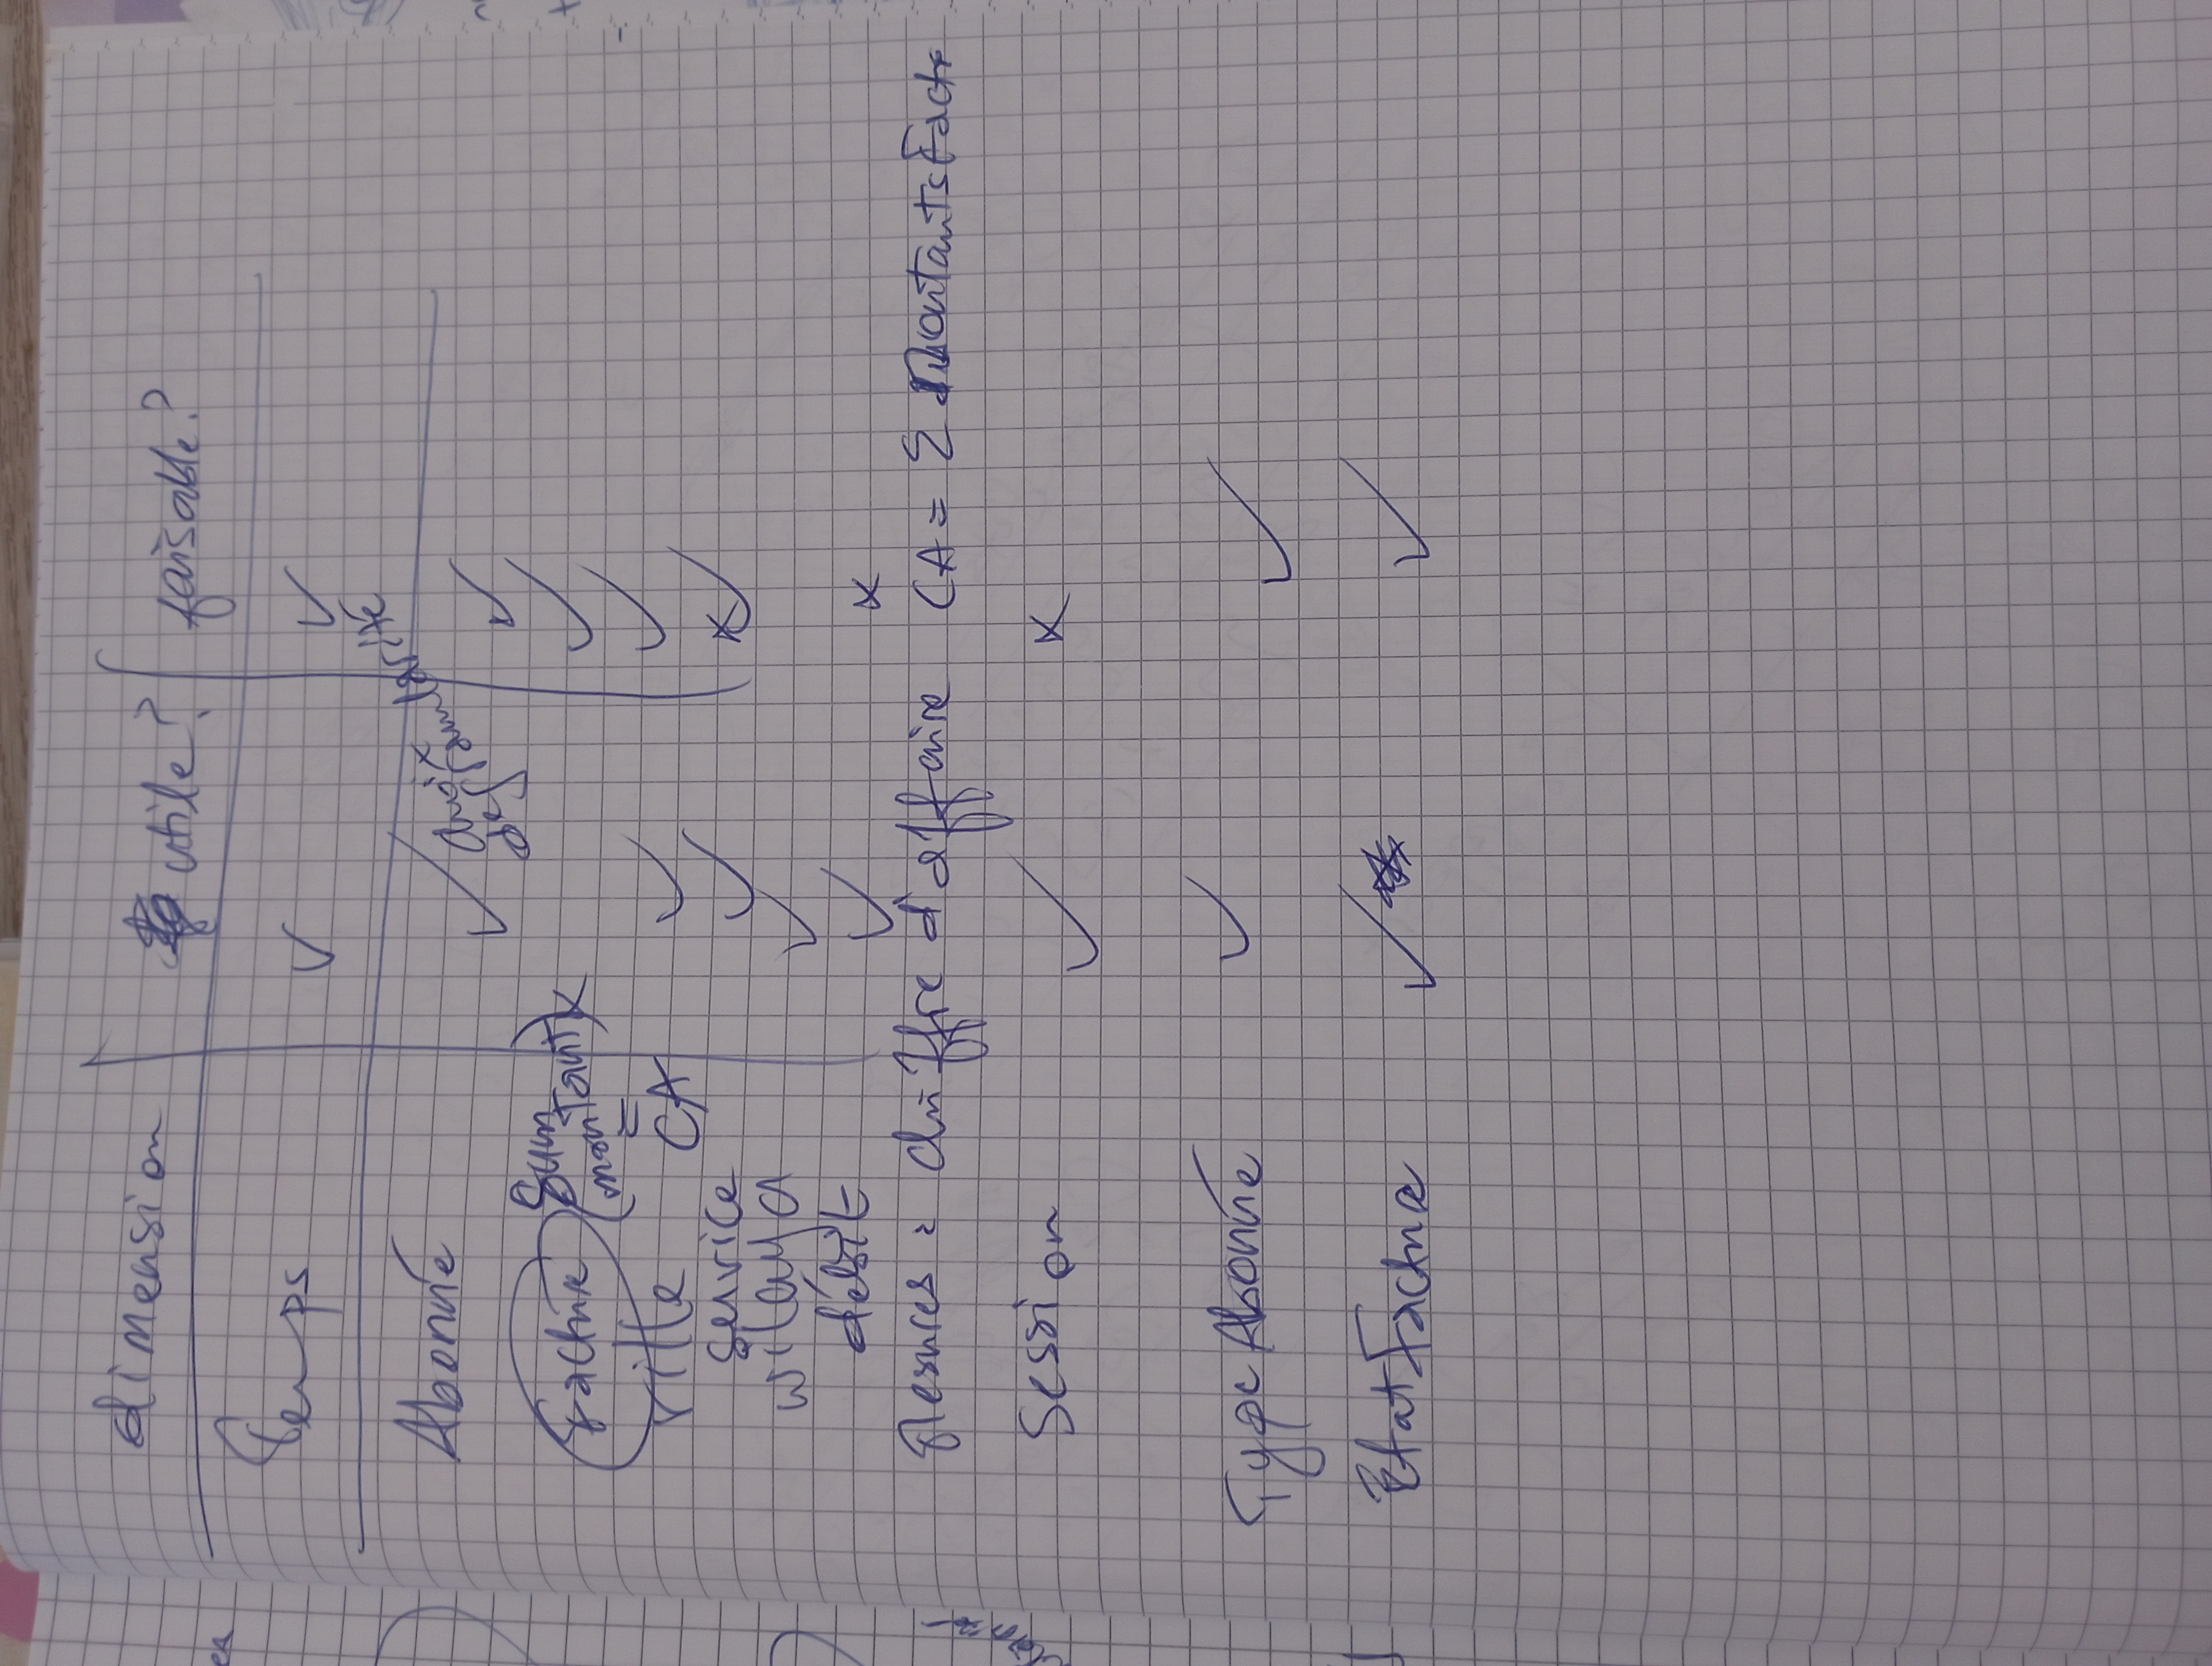 dimension utile? faisable?
Temps ✓ ✓
Abonné ✓ choix de granularité ✓
Facture (Sum montant) x ✓
= CA
ville ✓ ✓
service ✓ x ✓
wilaya ✓
débit ✓ x
Mesures : chiffre d'affaire CA = Σ Montants Fact
Session ✓ x
Type Abonné ✓ ✓
Etat Facture ✓ ✓